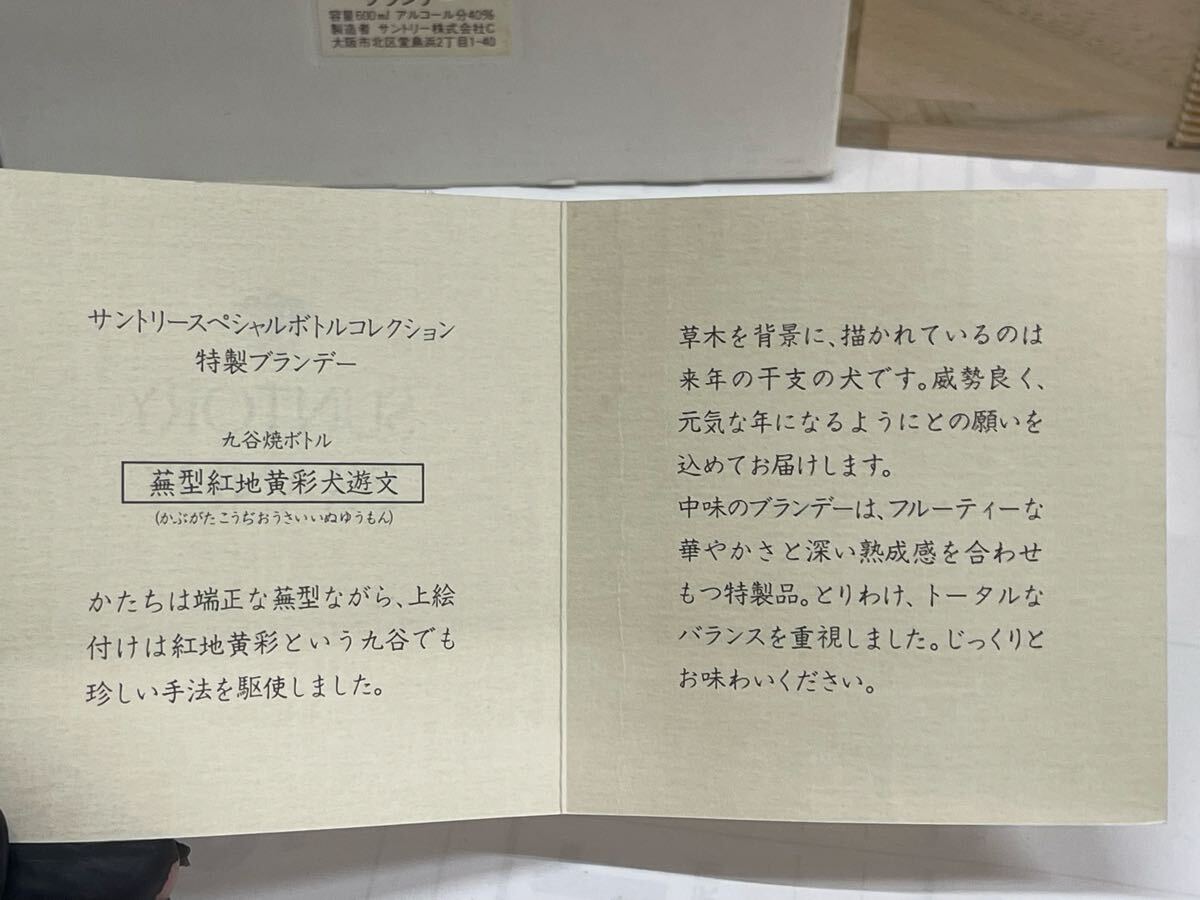 ブランデー
容量600ml アルコール分40%
製造者 サントリー株式会社C
大阪市北区堂島浜2丁目1-40
サントリースペシャルボトルコレクション
特製ブランデー
九谷焼ボトル
蕪型紅地黄彩犬遊文
(かぶがたこうぢおうさいいぬゆうもん)
かたちは端正な蕪型ながら、上絵
付けは紅地黄彩という九谷でも
珍しい手法を駆使しました。
草木を背景に、描かれているのは
来年の干支の犬です。威勢良く、
元気な年になるようにとの願いを
込めてお届けします。
中味のブランデーは、フルーティーな
華やかさと深い熟成感を合わせ
もつ特製品。とりわけ、トータルな
バランスを重視しました。じっくりと
お味わいください。
SUNTORY